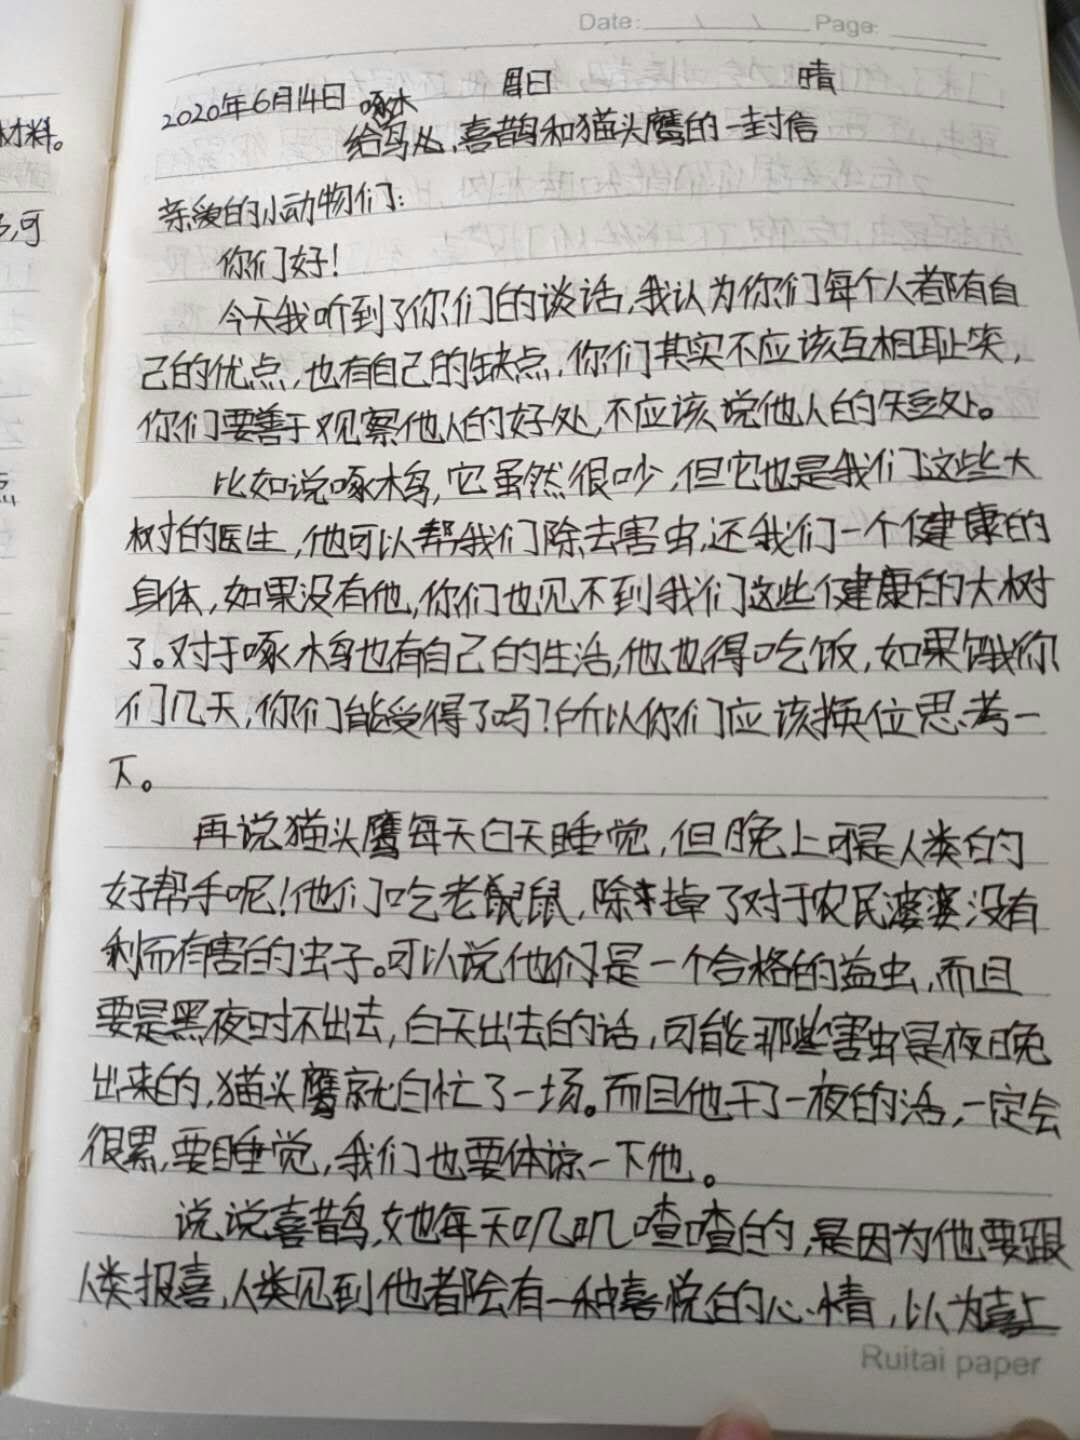 Date: / / Page:
2020年6月14日 周日 晴
给啄木鸟、喜鹊和猫头鹰的一封信
亲爱的小动物们:
你们好!
今天我听到了你们的谈话,我认为你们每个人都有自
己的优点,也有自己的缺点,你们其实不应该互相耻笑,
你们要善于观察他人的好处,不应该说他人的短处。
比如说啄木鸟,它虽然很吵,但它也是我们这些大
树的医生,他可以帮我们除去害虫,还我们一个健康的
身体,如果没有他,你们也见不到我们这些健康的大树
了。对于啄木鸟也有自己的生活,他也得吃饭,如果饿你
们几天,你们能受得了吗?所以你们应该换位思考一
下。
再说猫头鹰每天白天睡觉,但晚上可是人类的
好帮手呢!他们吃老鼠,除掉了对于农民婆婆没有
利而有害的虫子。可以说他们是一个合格的益虫,而且
要是黑夜时不出去,白天出去的话,可能那些害虫是夜晚
出来的,猫头鹰就白忙了一场。而且他干了一夜的活,一定会
很累,要睡觉,我们也要体谅一下他。
说说喜鹊,她每天叽叽喳喳的,是因为他要跟
人类报喜,人类见到他都会有一种喜悦的心情,以为喜上
Ruitai paper
材料。
可